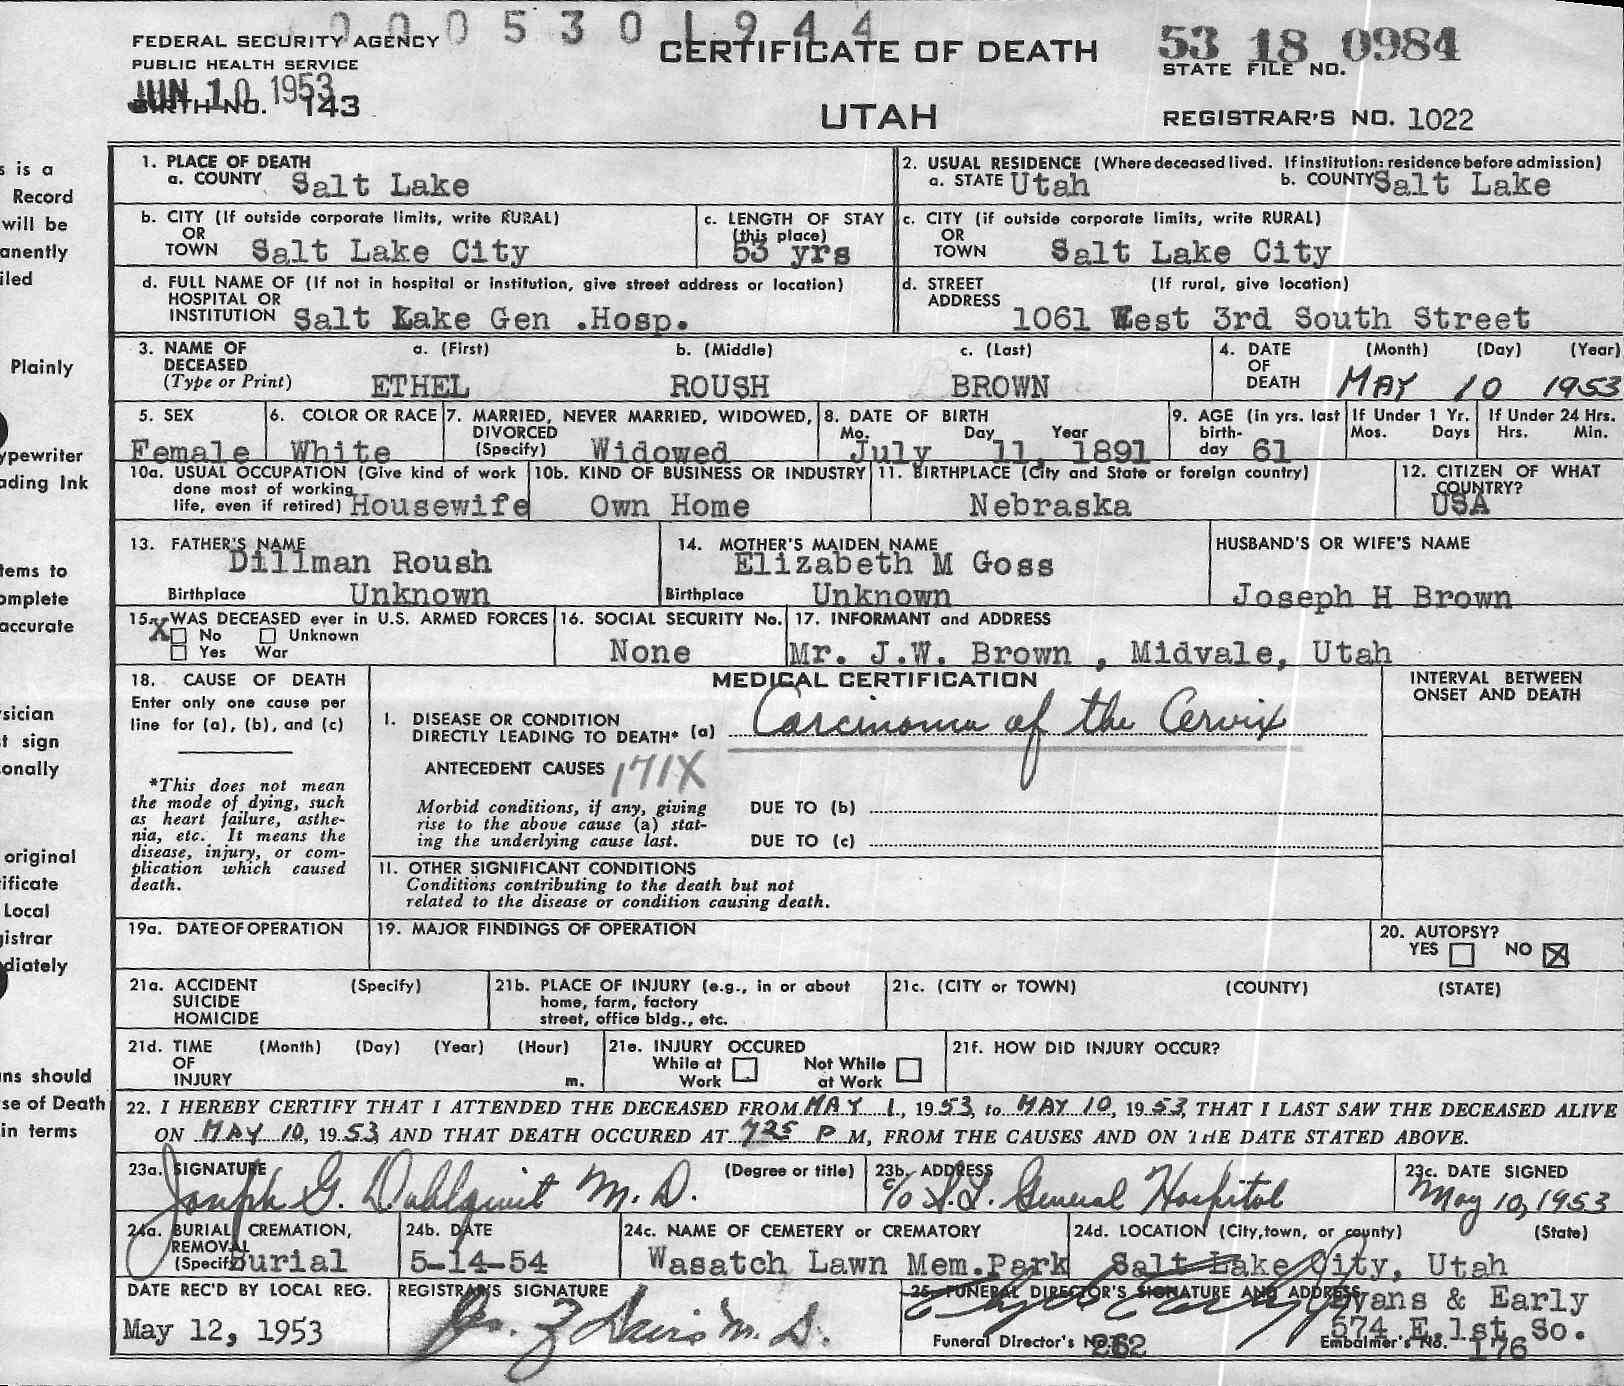 000530 1944
FEDERAL SECURITY AGENCY
PUBLIC HEALTH SERVICE
JUN 10 1953
BIRTH NO. 143
CERTIFICATE OF DEATH
UTAH
53 18 0984
STATE FILE NO.
REGISTRAR'S NO. 1022
s is a
Record
will be
anently
iled
Plainly
ypewriter
ading Ink
tems to
omplete
accurate
sician
t sign
onally
original
ificate
Local
gistrar
diately
ns should
se of Death
in terms
1. PLACE OF DEATH
a. COUNTY Salt Lake
2. USUAL RESIDENCE (Where deceased lived. If institution: residence before admission)
a. STATE Utah b. COUNTY Salt Lake
b. CITY (If outside corporate limits, write RURAL)
OR
TOWN Salt Lake City
c. LENGTH OF STAY
(this place)
53 yrs
c. CITY (if outside corporate limits, write RURAL)
OR
TOWN Salt Lake City
d. FULL NAME OF (If not in hospital or institution, give street address or location)
HOSPITAL OR
INSTITUTION Salt Lake Gen .Hosp.
d. STREET (If rural, give location)
ADDRESS
1061 West 3rd South Street
3. NAME OF a. (First) b. (Middle) c. (Last)
DECEASED
(Type or Print) ETHEL ROUSH BROWN
4. DATE (Month) (Day) (Year)
OF
DEATH MAY 10 1953
5. SEX
Female
6. COLOR OR RACE
White
7. MARRIED, NEVER MARRIED, WIDOWED,
DIVORCED
(Specify) Widowed
8. DATE OF BIRTH
Mo. Day Year
July 11, 1891
9. AGE (in yrs. last
birth-
day 61
If Under 1 Yr.
Mos. Days
If Under 24 Hrs.
Hrs. Min.
10a. USUAL OCCUPATION (Give kind of work
done most of working
life, even if retired) Housewife
10b. KIND OF BUSINESS OR INDUSTRY
Own Home
11. BIRTHPLACE (City and State or foreign country)
Nebraska
12. CITIZEN OF WHAT
COUNTRY?
USA
13. FATHER'S NAME
Dillman Roush
Birthplace Unknown
14. MOTHER'S MAIDEN NAME
Elizabeth M Goss
Birthplace Unknown
HUSBAND'S OR WIFE'S NAME
Joseph H Brown
15. WAS DECEASED ever in U.S. ARMED FORCES
X No Unknown
Yes War
16. SOCIAL SECURITY No.
None
17. INFORMANT and ADDRESS
Mr. J.W. Brown , Midvale, Utah
18. CAUSE OF DEATH
Enter only one cause per
line for (a), (b), and (c)
*This does not mean
the mode of dying, such
as heart failure, asthe-
nia, etc. It means the
disease, injury, or com-
plication which caused
death.
MEDICAL CERTIFICATION
I. DISEASE OR CONDITION
DIRECTLY LEADING TO DEATH* (a) Carcinoma of the Cervix
ANTECEDENT CAUSES 171X
Morbid conditions, if any, giving
rise to the above cause (a) stat-
ing the underlying cause last.
DUE TO (b)
DUE TO (c)
II. OTHER SIGNIFICANT CONDITIONS
Conditions contributing to the death but not
related to the disease or condition causing death.
INTERVAL BETWEEN
ONSET AND DEATH
19a. DATE OF OPERATION
19. MAJOR FINDINGS OF OPERATION
20. AUTOPSY?
YES NO X
21a. ACCIDENT (Specify)
SUICIDE
HOMICIDE
21b. PLACE OF INJURY (e.g., in or about
home, farm, factory
street, office bldg., etc.
21c. (CITY or TOWN) (COUNTY) (STATE)
21d. TIME (Month) (Day) (Year) (Hour)
OF
INJURY m.
21e. INJURY OCCURED
While at Not While
Work at Work
21f. HOW DID INJURY OCCUR?
22. I HEREBY CERTIFY THAT I ATTENDED THE DECEASED FROM MAY 1, 1953, to MAY 10, 1953, THAT I LAST SAW THE DECEASED ALIVE
ON MAY 10, 1953 AND THAT DEATH OCCURED AT 725 P M, FROM THE CAUSES AND ON THE DATE STATED ABOVE.
23a. SIGNATURE (Degree or title)
Joseph G. Dahlquist M.D.
23b. ADDRESS
c/o S.L. General Hospital
23c. DATE SIGNED
May 10, 1953
24a. BURIAL CREMATION,
REMOVAL
(Specify) Burial
24b. DATE
5-14-54
24c. NAME OF CEMETERY OR CREMATORY
Wasatch Lawn Mem.Park
24d. LOCATION (City, town, or county) (State)
Salt Lake City, Utah
DATE REC'D BY LOCAL REG.
May 12, 1953
REGISTRAR'S SIGNATURE
Davis M.D.
25. FUNERAL DIRECTOR'S SIGNATURE AND ADDRESS
Evans & Early
574 E.1st So.
Funeral Director's No. 262
Embalmer's No. 176